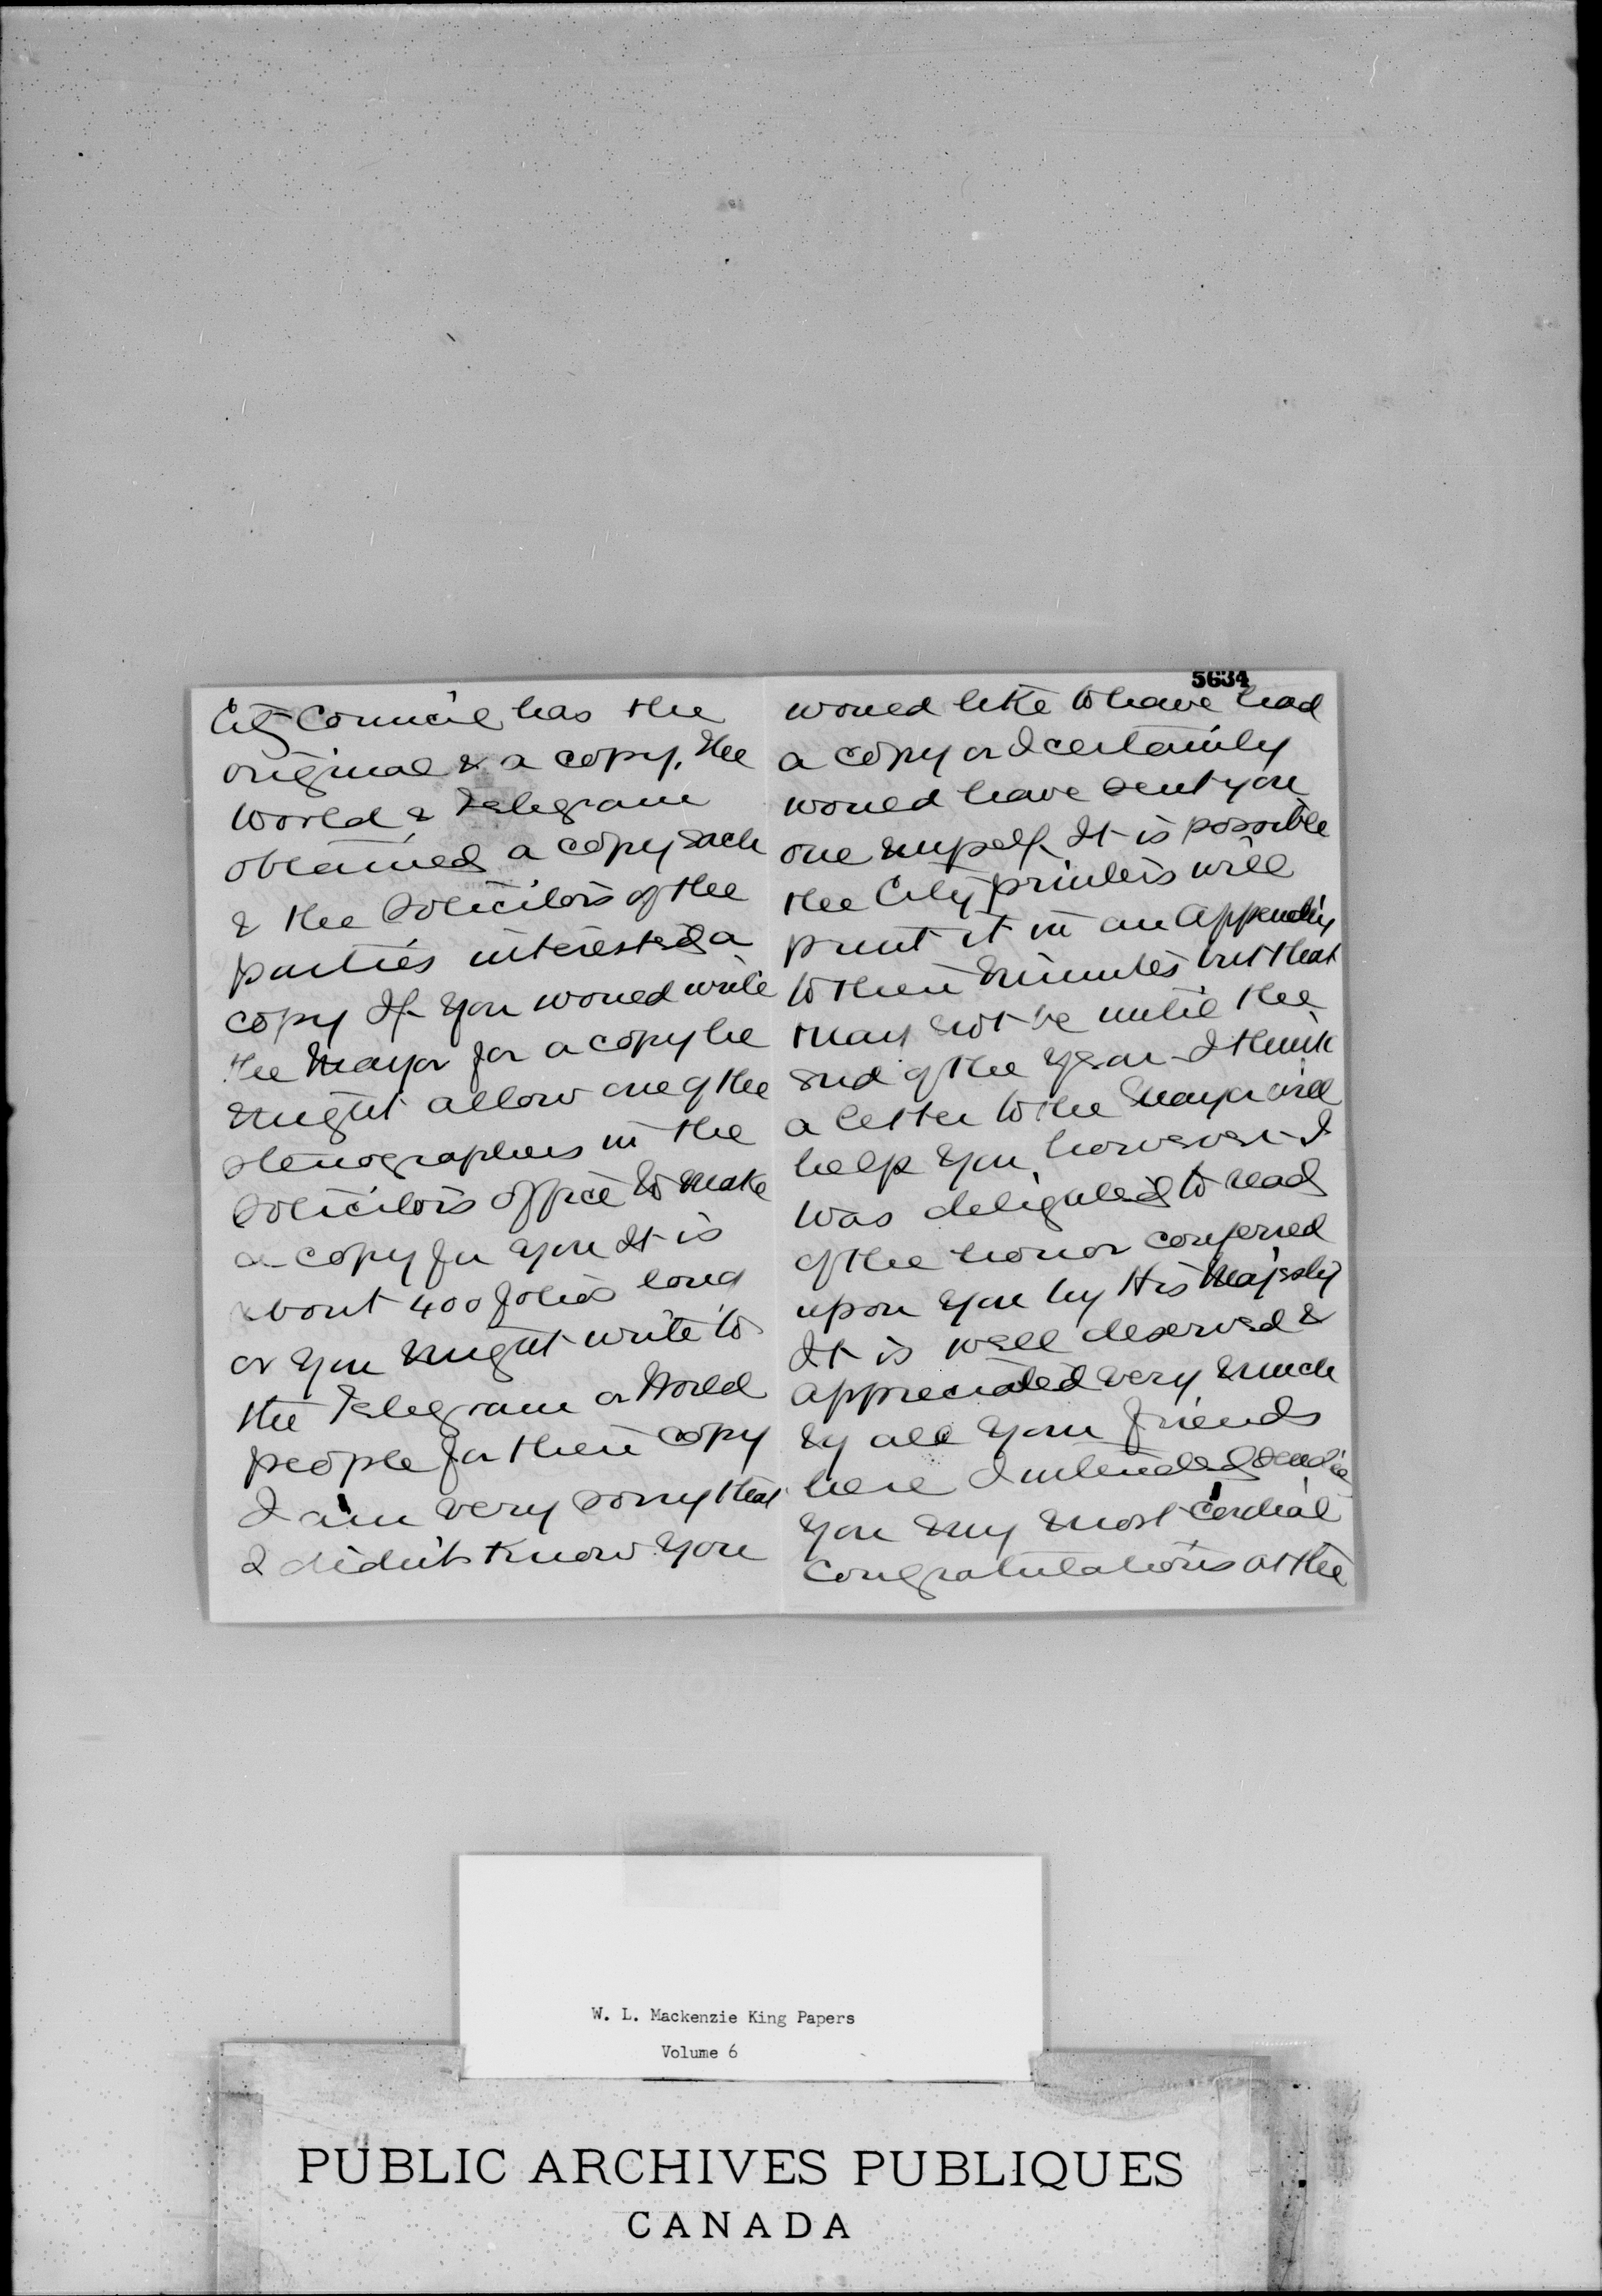 City Council has the
original & a copy. The
World & Telegram
obtained a copy each
& the Solicitors of the
parties interested a
copy If you would write
the Mayor for a copy he
might allow one of the
stenographers in the
Solicitors office to make
a copy for you It is
about 400 folios long
or you might write to
the Telegram or World
people for their copy
I am very sorry that
I didn't know you
5634
would like to have had
a copy or I certainly
would have sent you
one myself. It is possible
the City printers will
print it in an appendix
to their minutes but that
may not be until the
end of the year - I think
a letter to the Mayor will
help you, however - I
was delighted to read
of the honor conferred
upon you by His Majesty
It is well deserved &
appreciated very much
by all your friends
here I intended sending
you my most cordial
congratulations at the
W. L. Mackenzie King Papers
Volume 6
PUBLIC ARCHIVES PUBLIQUES
CANADA